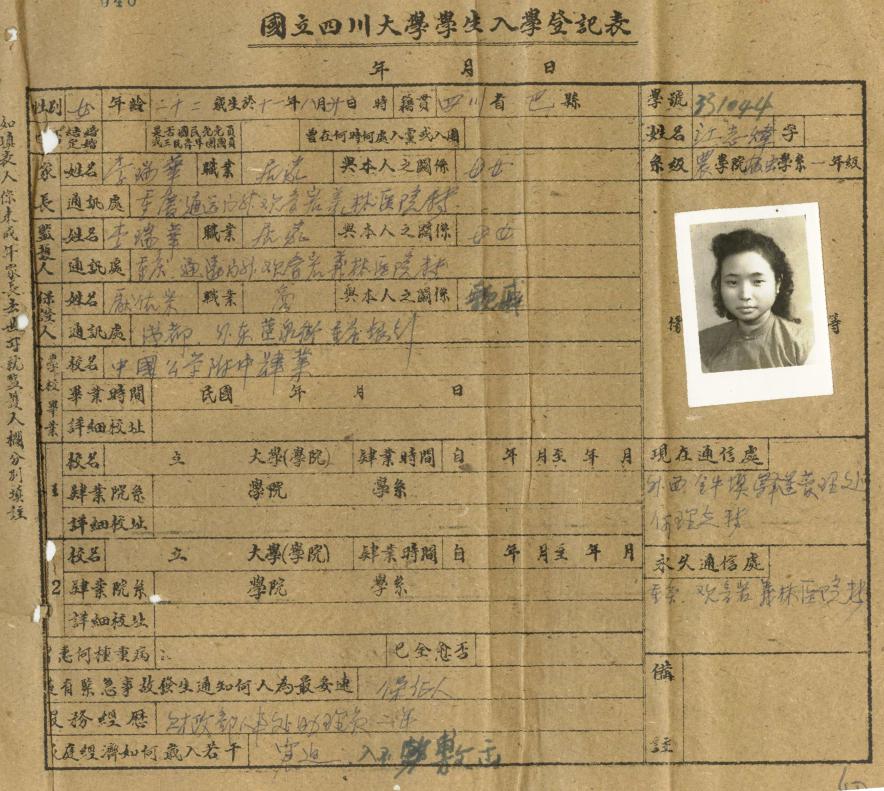 國立四川大學學生入學登記表
年 月 日
性別 女 年齡 二十二 歲生於十一年八月廿日 時 籍貫 四川 省 巴 縣
學號 331044
是否國民黨黨員或三民青年團團員 曾在何時何處入黨或入團
姓名 江志煒 字
家長 姓名 李瑞華 職業 與本人之關係 母女
系級 農學院 學系一年級
通訊處 重慶通遠門外观音岩義林医院轉
監護人 姓名 李瑞華 職業 與本人之關係 母女
通訊處 重慶 通遠門外观音岩義林医院轉
保證人 姓名 職業 與本人之關係
通訊處 成都 外东
學校畢業 校名 中國公学附中肄業
畢業時間 民國 年 月 日
詳細校址
1 校名 立 大學(學院) 肄業時間 自 年 月至 年 月
肄業院系 學院 學系
詳細校址
2 校名 立 大學(學院) 肄業時間 自 年 月至 年 月
肄業院系 學院 學系
詳細校址
患何種重病 已全愈否
有緊急事故發生通知何人為最妥速 保证人
服務經歷 財政部人事处助理員二年
家庭經濟如何歲入若干 窘迫 入不敷出
現在通信處
外西
永久通信處
重慶 观音岩義林医院轉
備註
如填表人係未成年家長去世可就監護人欄分別填註